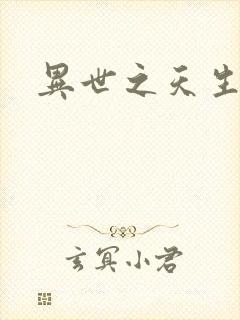 異世之天生
玄冥小君